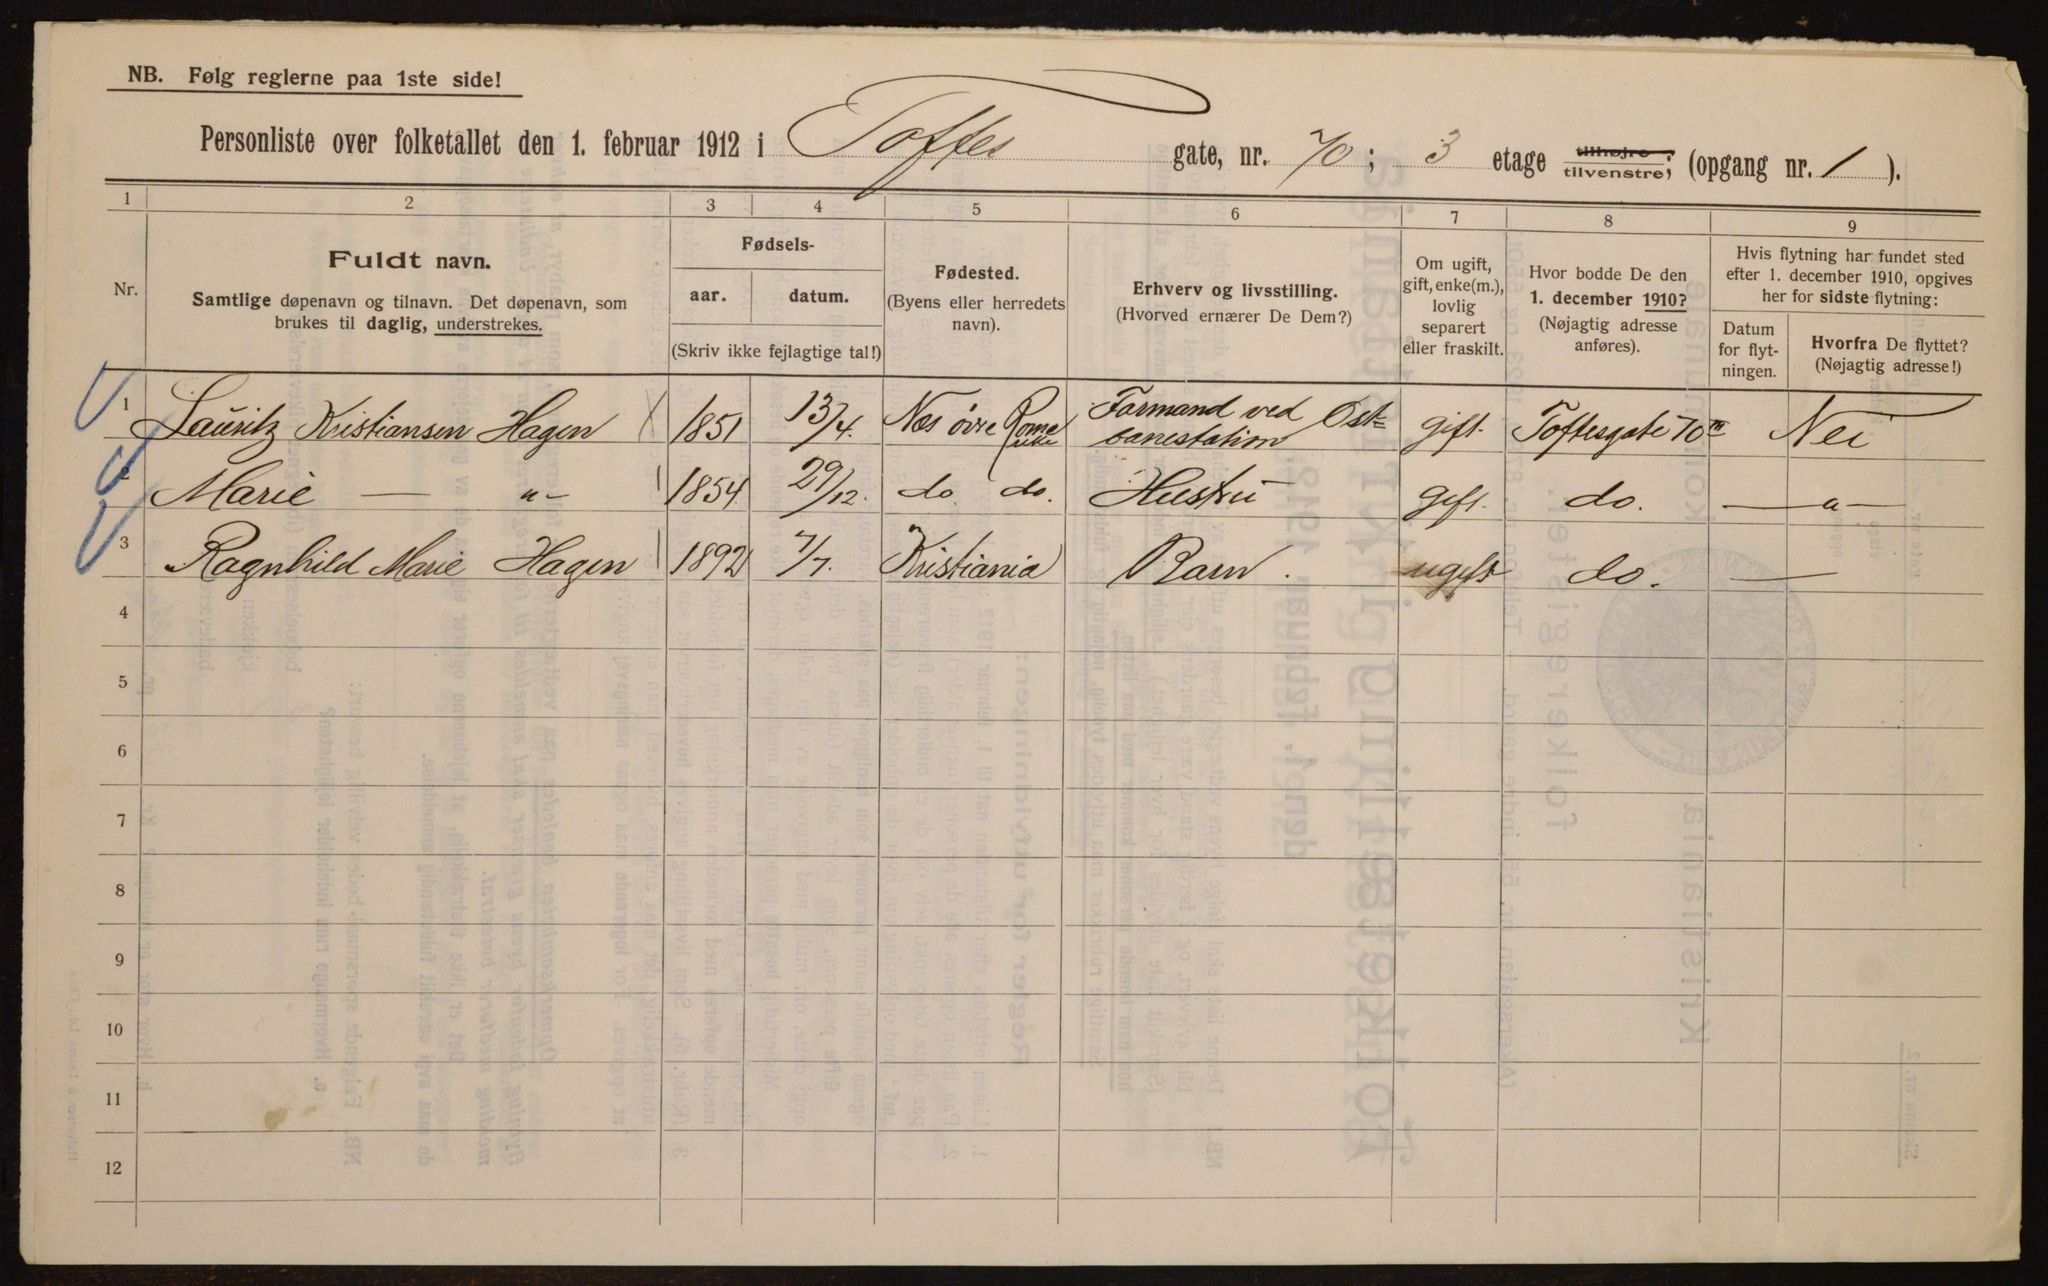 NB. Følg reglerne paa 1ste side!
Personliste over folketallet den 1. februar 1912 i Toftes gate, nr. 70; 3 etage tilhøjre tilvenstre; (opgang nr. 1).
1 2 3 4 5 6 7 8 9
Nr.
Fuldt navn.
Samtlige døpenavn og tilnavn. Det døpenavn, som
brukes til daglig, understrekes.
Fødsels-
aar. datum.
(Skriv ikke fejlagtige tal!)
Fødested.
(Byens eller herredets
navn).
Erhverv og livsstilling.
(Hvorved ernærer De Dem?)
Om ugift,
gift, enke(m.),
lovlig
separert
eller fraskilt.
Hvor bodde De den
1. december 1910?
(Nøjagtig adresse
anføres).
Hvis flytning har fundet sted
efter 1. december 1910, opgives
her for sidste flytning:
Datum
for flyt-
ningen.
Hvorfra De flyttet?
(Nøjagtig adresse!)
1 Lauritz Kristiansen Hagen 1851 13/4. Nes øvre Rome rike Formand ved Øst= banestation gift. Toftesgate 70 III Nei
2 Marie — " — 1854 29/12. do. do. Hustru gift. do. — " —
3 Ragnhild Marie Hagen 1892 7/7. Kristiania Barn. ugift do. —
4
5
6
7
8
9
10
11
12